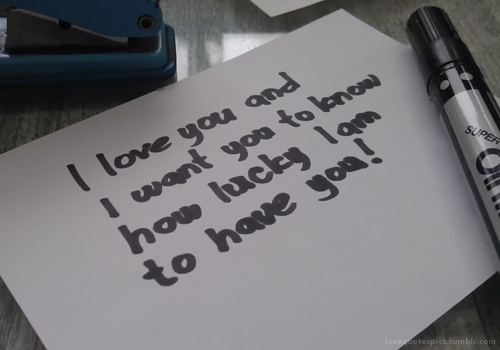 I love you and
I want you to know
how lucky I am
to have you!
SUPER
lovequotespics.tumblr.com